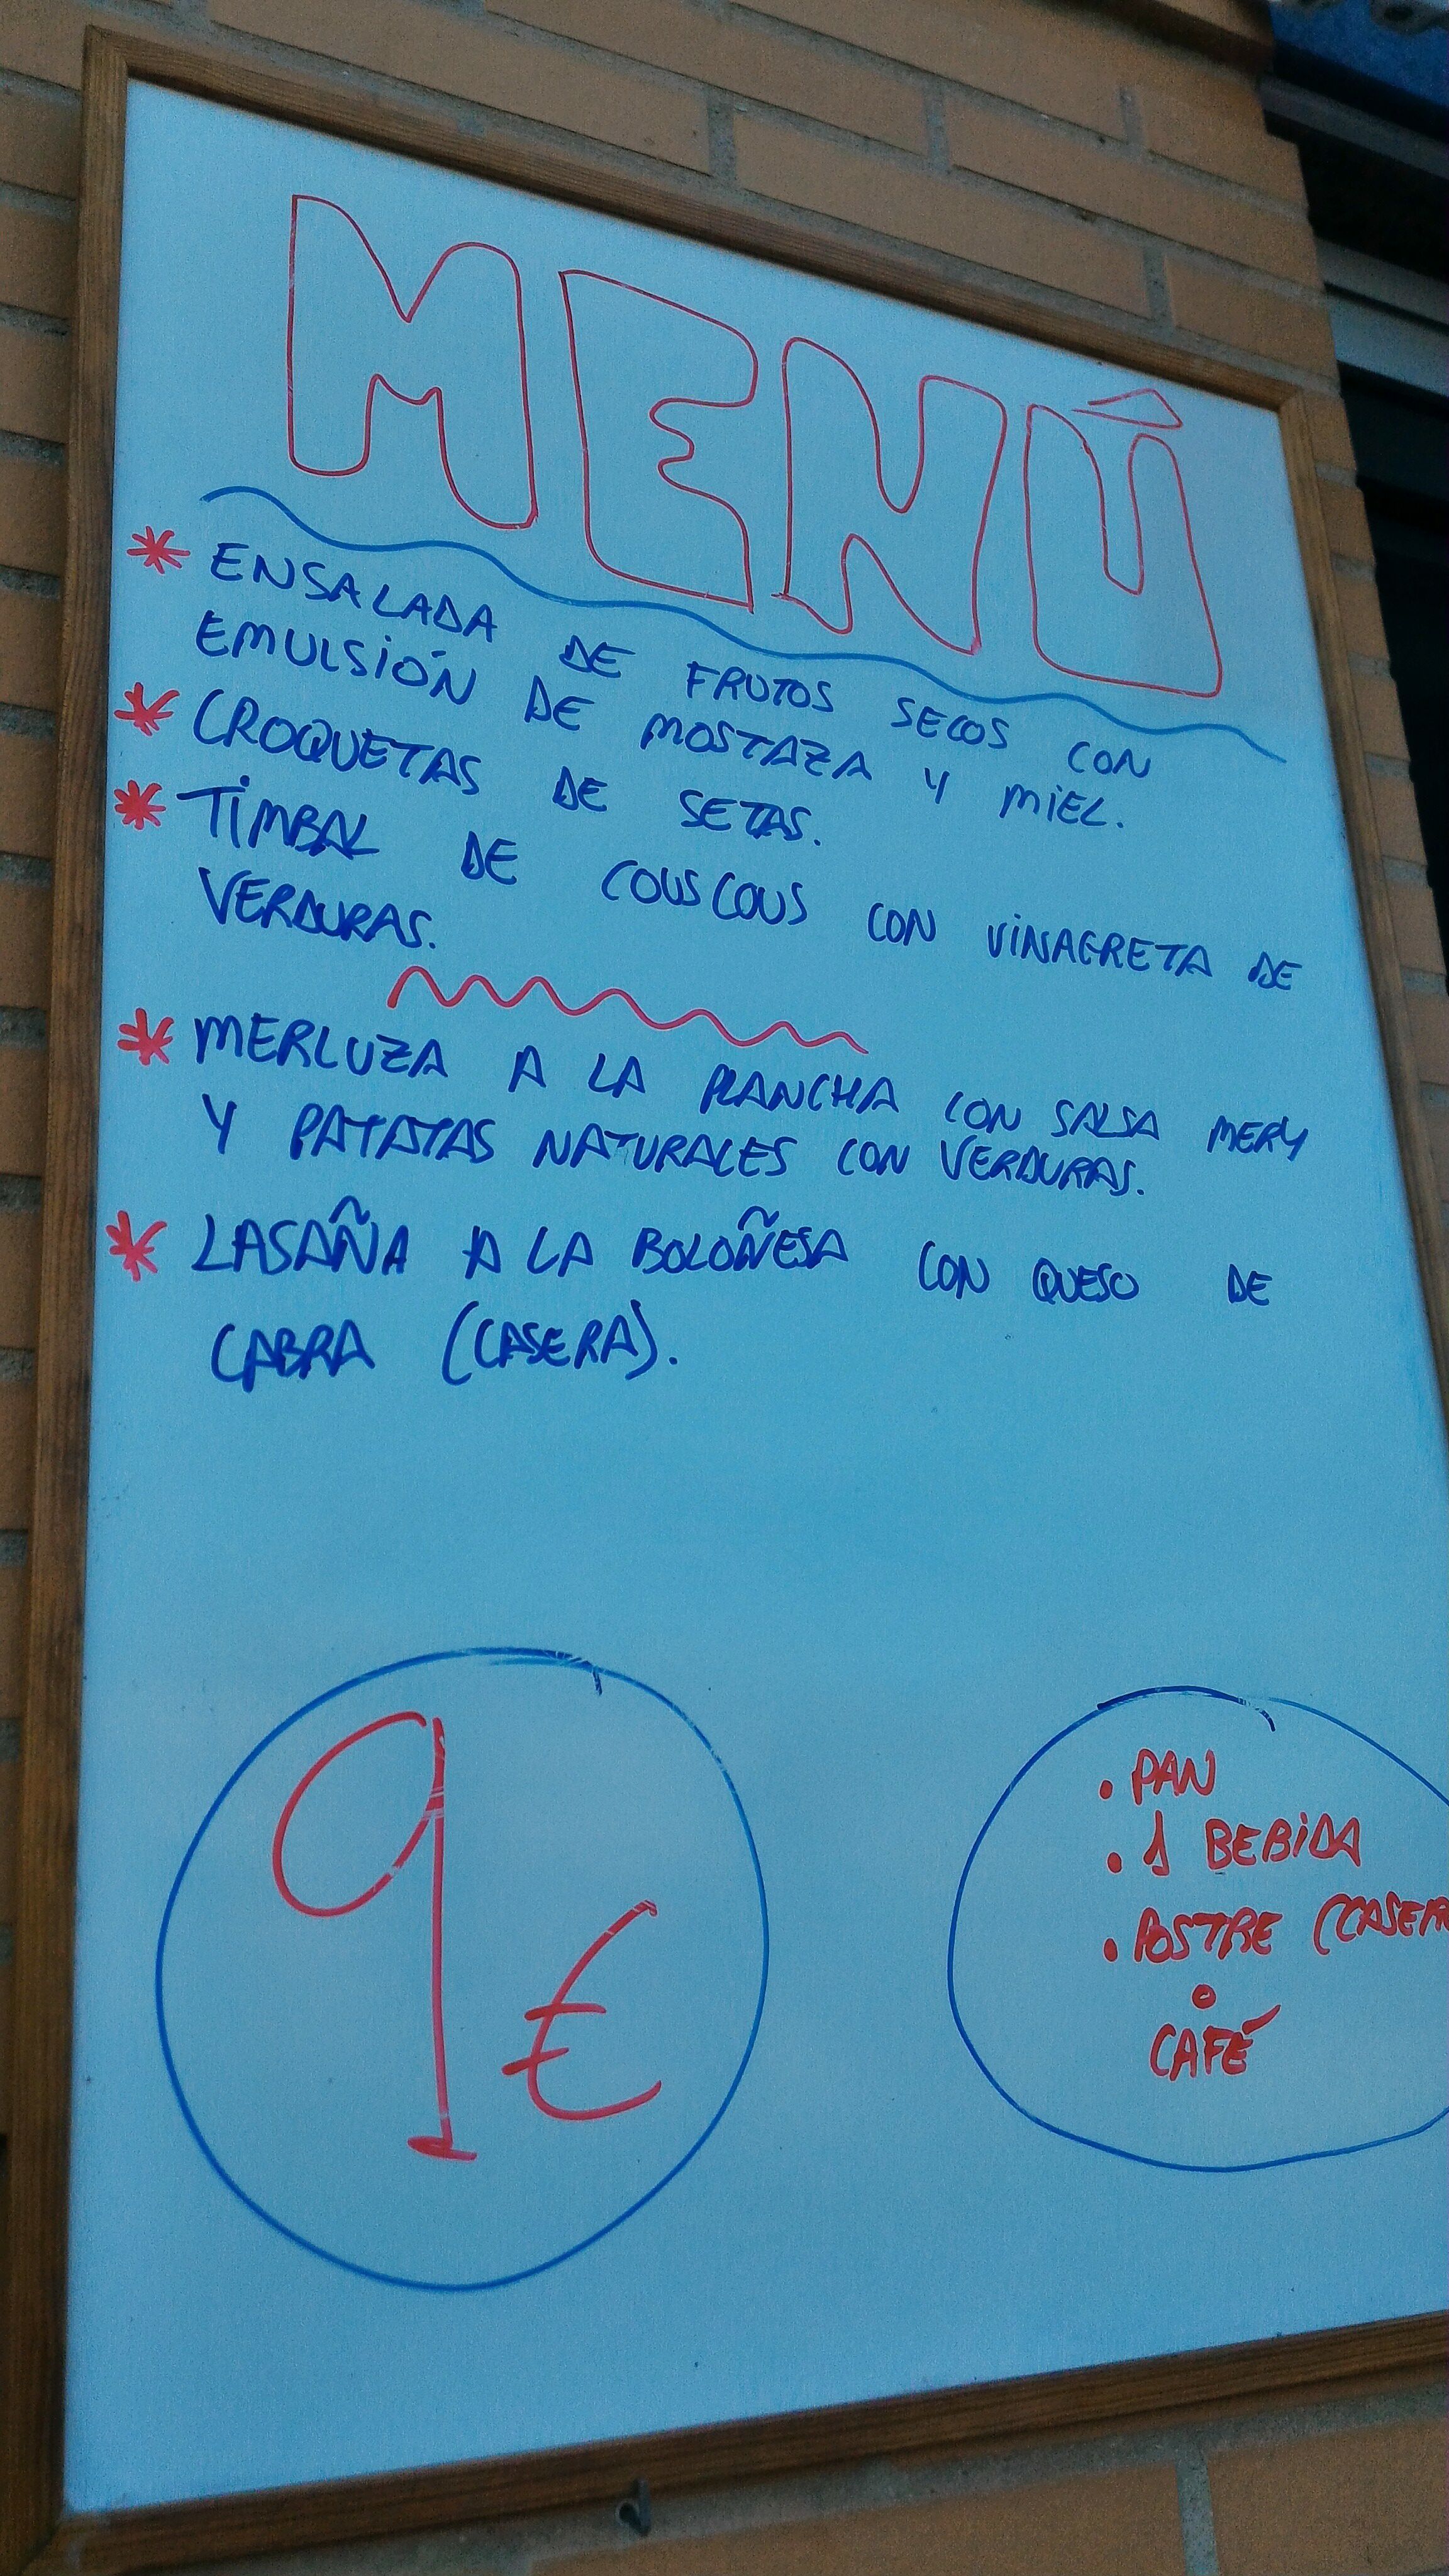 MENÚ
* ENSALADA DE FRUTOS SECOS CON
EMULSIÓN DE MOSTAZA Y MIEL.
* CROQUETAS DE SETAS.
* TIMBAL DE COUSCOUS CON VINAGRETA DE
VERDURAS.
* MERLUZA A LA PLANCHA CON SALSA MERY
Y PATATAS NATURALES CON VERDURAS.
* LASAÑA A LA BOLOÑESA CON QUESO DE
CABRA (CASERA).
9 €
• PAN
• 1 BEBIDA
• POSTRE (CASER
o
CAFÉ